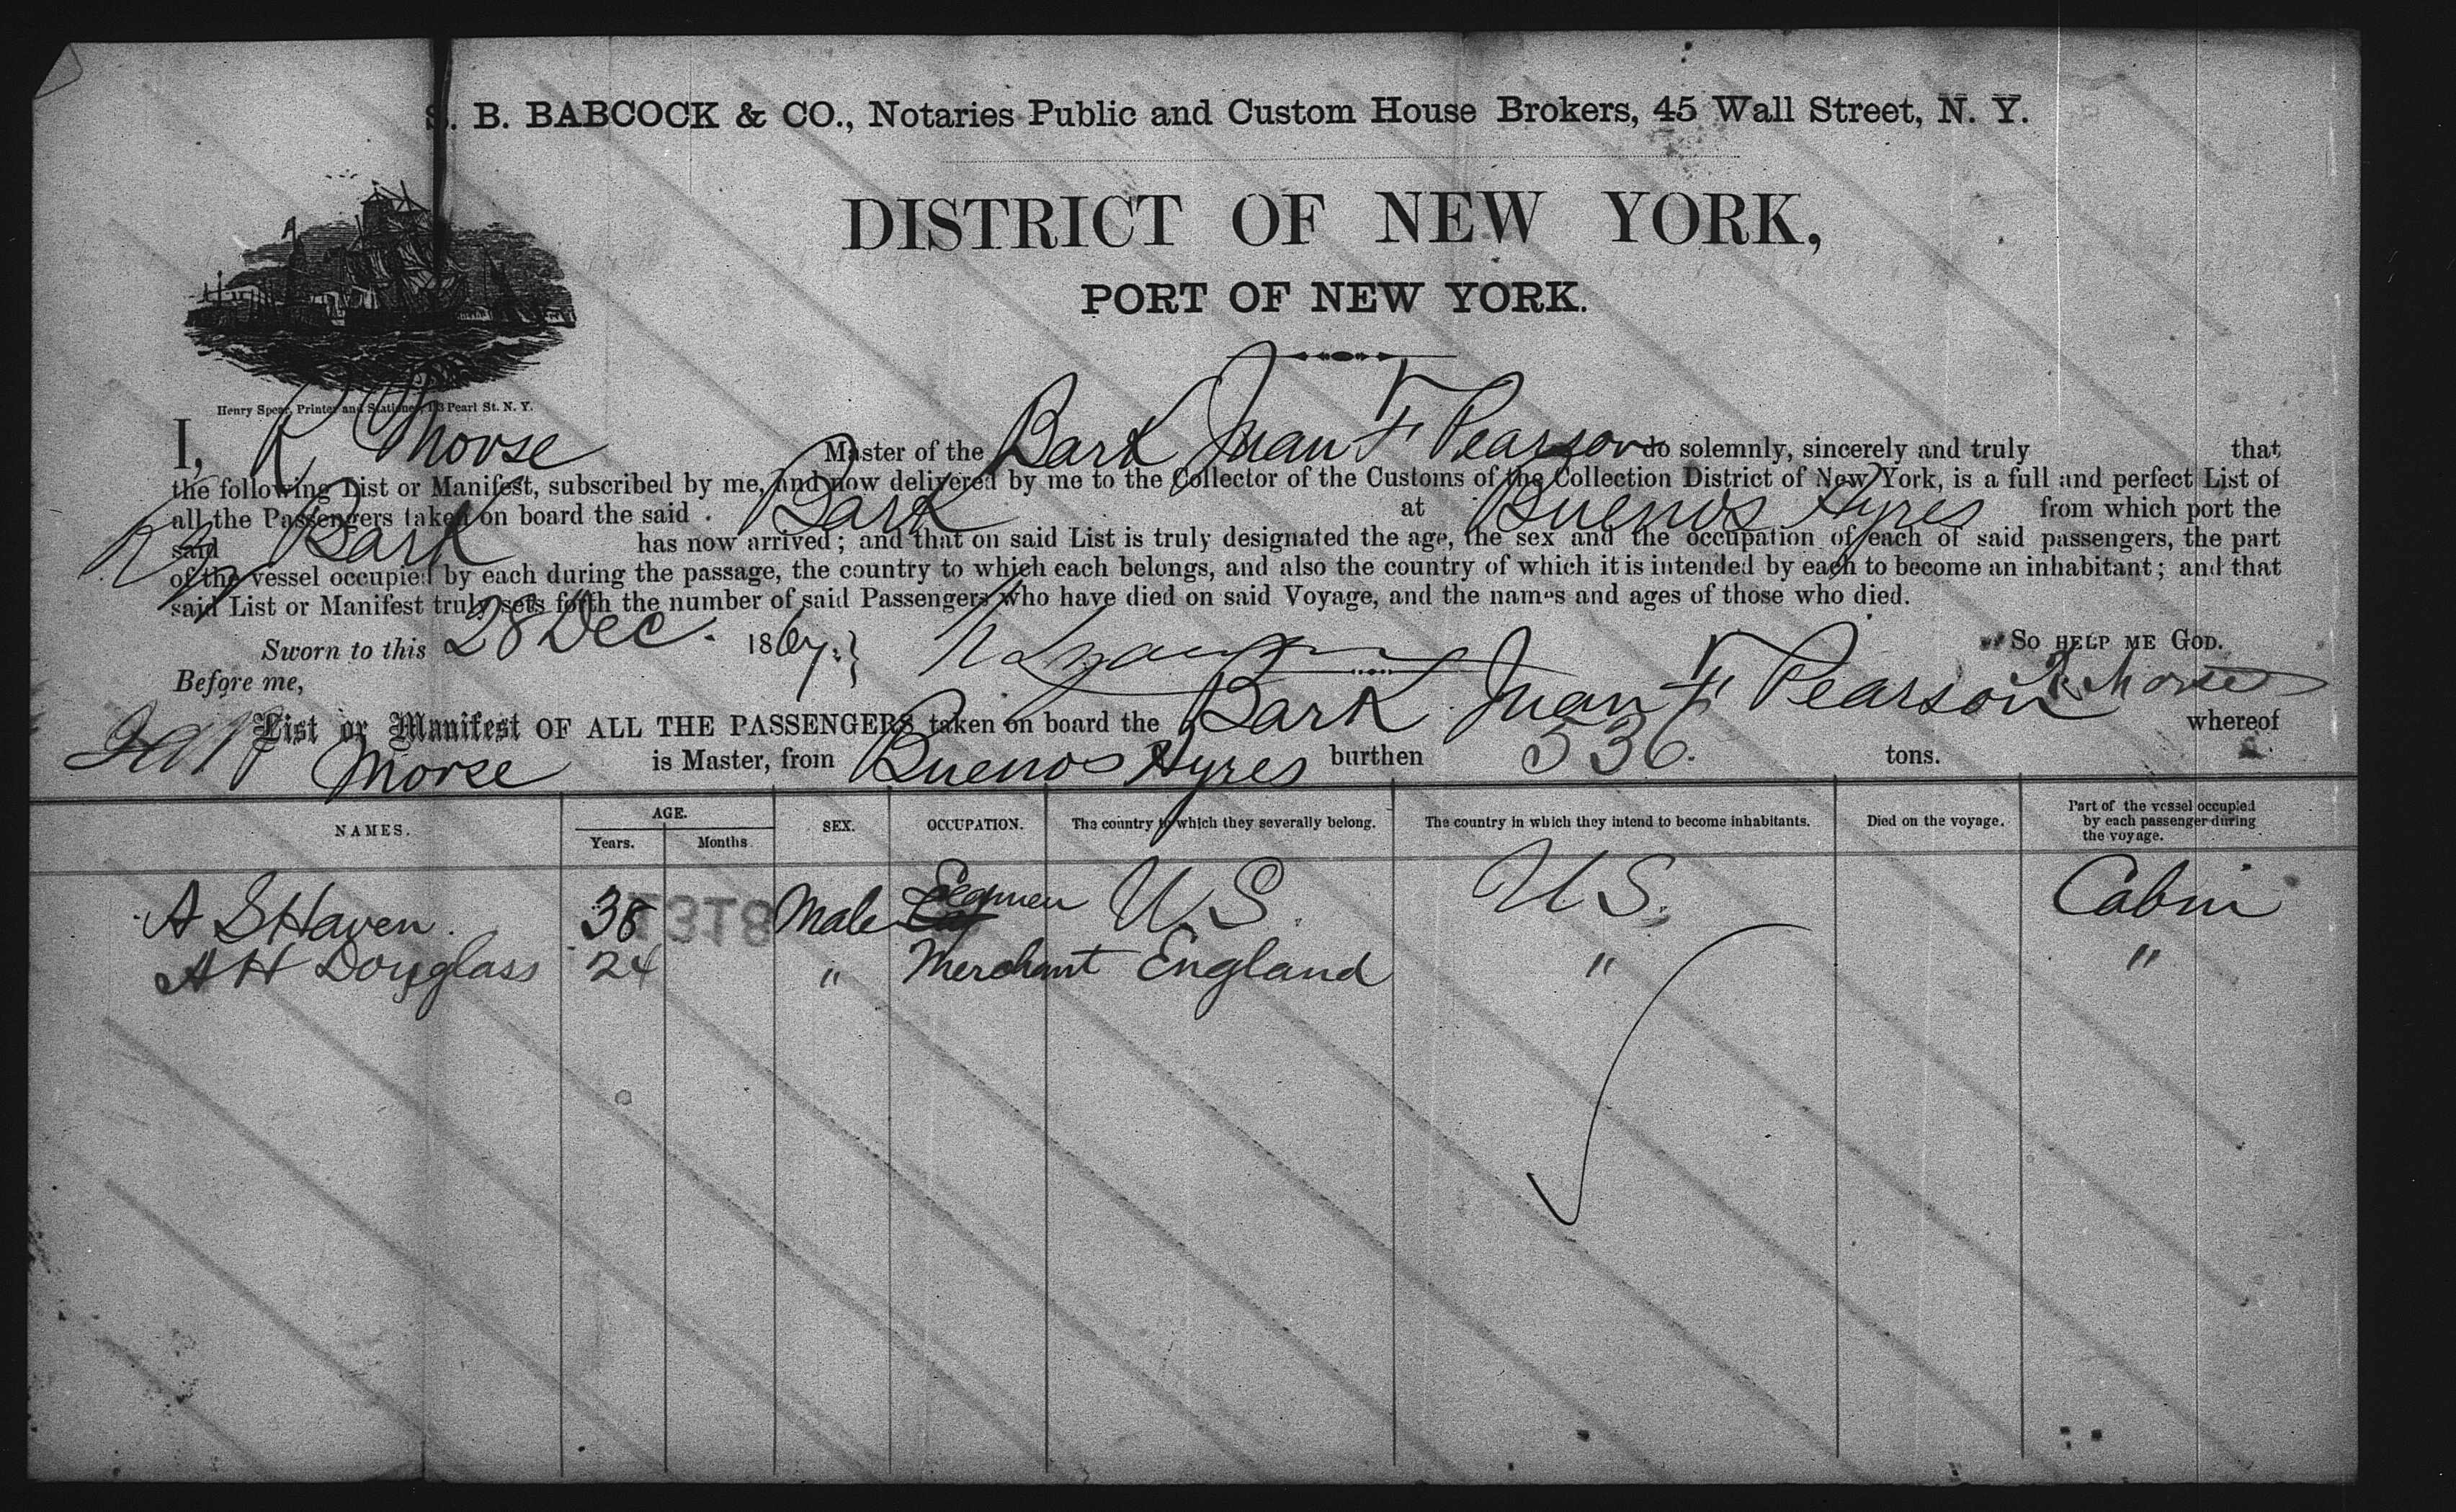 S. B. BABCOCK & CO., Notaries Public and Custom House Brokers, 45 Wall Street, N. Y.
DISTRICT OF NEW YORK,
PORT OF NEW YORK.
Henry Spear, Printer and Stationer, Pearl St. N. Y.
I, R Morse Master of the Bark Juan F Pearson do solemnly, sincerely and truly that
the following List or Manifest, subscribed by me, and now delivered by me to the Collector of the Customs of the Collection District of New York, is a full and perfect List of
all the Passengers taken on board the said Bark at Buenos Ayres from which port the
said Bark has now arrived; and that on said List is truly designated the age, the sex and the occupation of each of said passengers, the part
of the vessel occupied by each during the passage, the country to which each belongs, and also the country of which it is intended by each to become an inhabitant; and that
said List or Manifest truly sets forth the number of said Passengers who have died on said Voyage, and the names and ages of those who died.
Sworn to this 28 Dec. 1867. SO HELP ME GOD.
Before me, R Morse
List or Manifest OF ALL THE PASSENGERS taken on board the Bark Juan F Pearson whereof
Morse is Master, from Buenos Ayres burthen 536. tons.
NAMES. AGE. Years. Months. SEX. OCCUPATION. The country to which they severally belong. The country in which they intend to become inhabitants. Died on the voyage. Part of the vessel occupied by each passenger during the voyage.
A S Haven. 38 Male U.S. U.S. Cabin
A H Douglass 24 " Merchant England " "